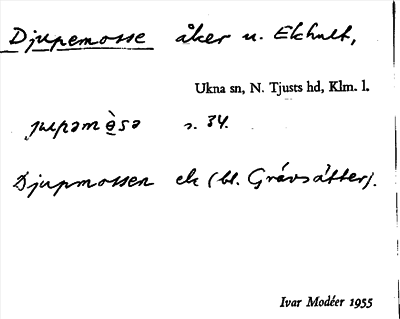 Djupemosse åker u. Ekhult,
Ukna sn, N. Tjusts hd, Klm. l.
s. 34.
Djupmossen ek (bl. Grävsätter).
Ivar Modéer 1955